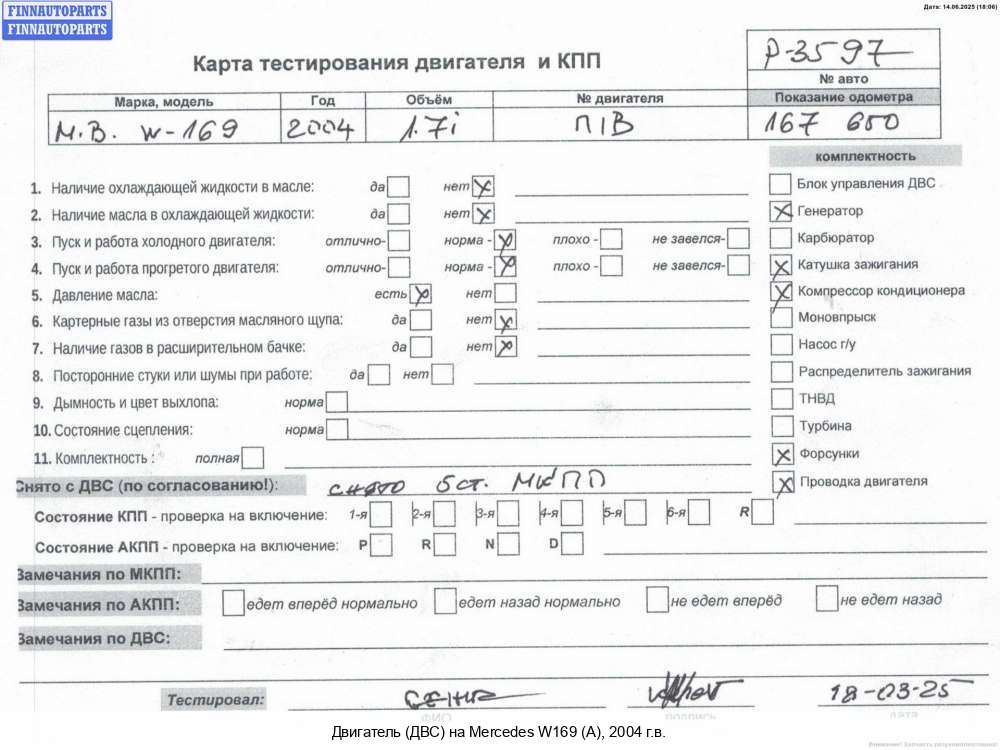 FINNAUTOPARTS
FINNAUTOPARTS
Дата: 14.06.2025 (18:06)
Карта тестирования двигателя и КПП
P-3597
№ авто
Марка, модель Год Объём № двигателя Показание одометра
M.B. W-169 2004 1.7i П1В 167 650
комплектность
1. Наличие охлаждающей жидкости в масле: да нет X
Блок управления ДВС
2. Наличие масла в охлаждающей жидкости: да нет X
X Генератор
3. Пуск и работа холодного двигателя: отлично- норма - X плохо - не завелся-
Карбюратор
4. Пуск и работа прогретого двигателя: отлично- норма - X плохо - не завелся-
X Катушка зажигания
5. Давление масла: есть X нет
X Компрессор кондиционера
6. Картерные газы из отверстия масляного щупа: да нет X
Моновпрыск
7. Наличие газов в расширительном бачке: да нет X
Насос г/у
8. Посторонние стуки или шумы при работе: да нет
Распределитель зажигания
9. Дымность и цвет выхлопа: норма
ТНВД
10. Состояние сцепления: норма
Турбина
11. Комплектность : полная
X Форсунки
Снято с ДВС (по согласованию!): снято 5ст. МКПП
X Проводка двигателя
Состояние КПП - проверка на включение: 1-я 2-я 3-я 4-я 5-я 6-я R
Состояние АКПП - проверка на включение: P R N D
Замечания по МКПП:
Замечания по АКПП: едет вперёд нормально едет назад нормально не едет вперёд не едет назад
Замечания по ДВС:
Тестировал: 18-03-25
ФИО подпись дата
Двигатель (ДВС) на Mercedes W169 (A), 2004 г.в.